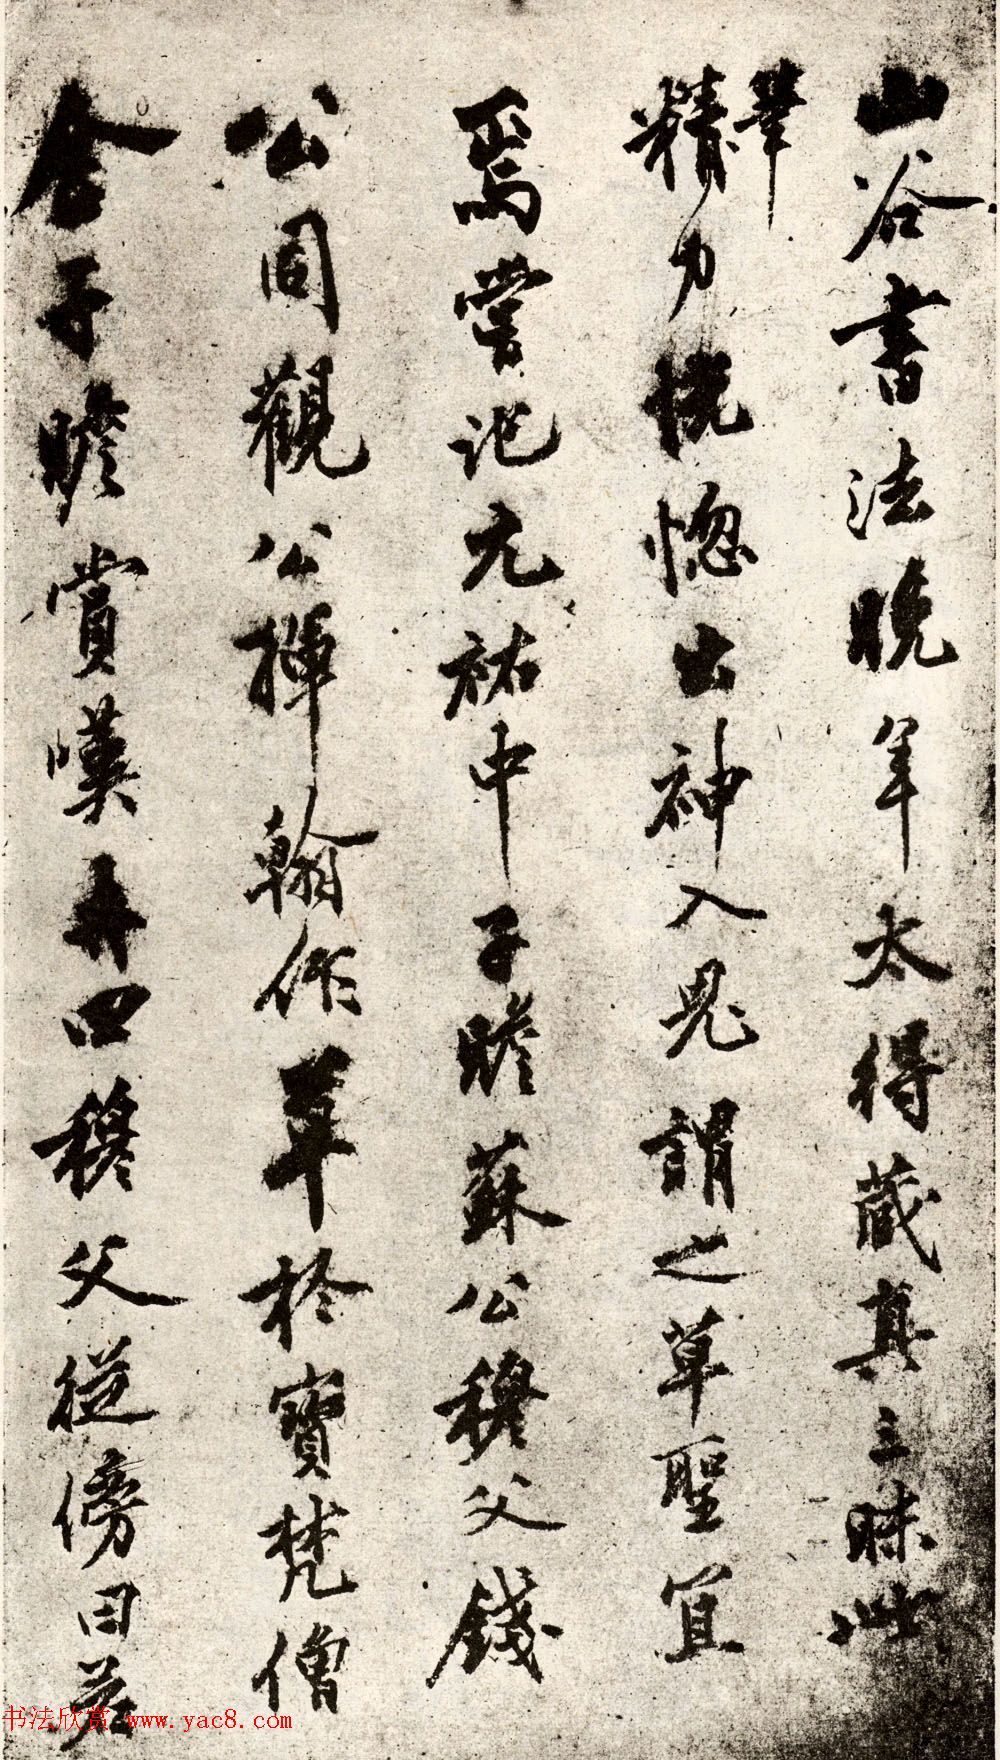 山谷書法晚年太得藏真三昧此
筆精力恍惚出神入鬼謂之草聖宜
焉嘗記元祐中子瞻蘇公穆父錢
公同觀公揮翰作草於寶梵僧
舍子瞻賞嘆再四穆父從傍曰若
书法欣赏 www.yac8.com